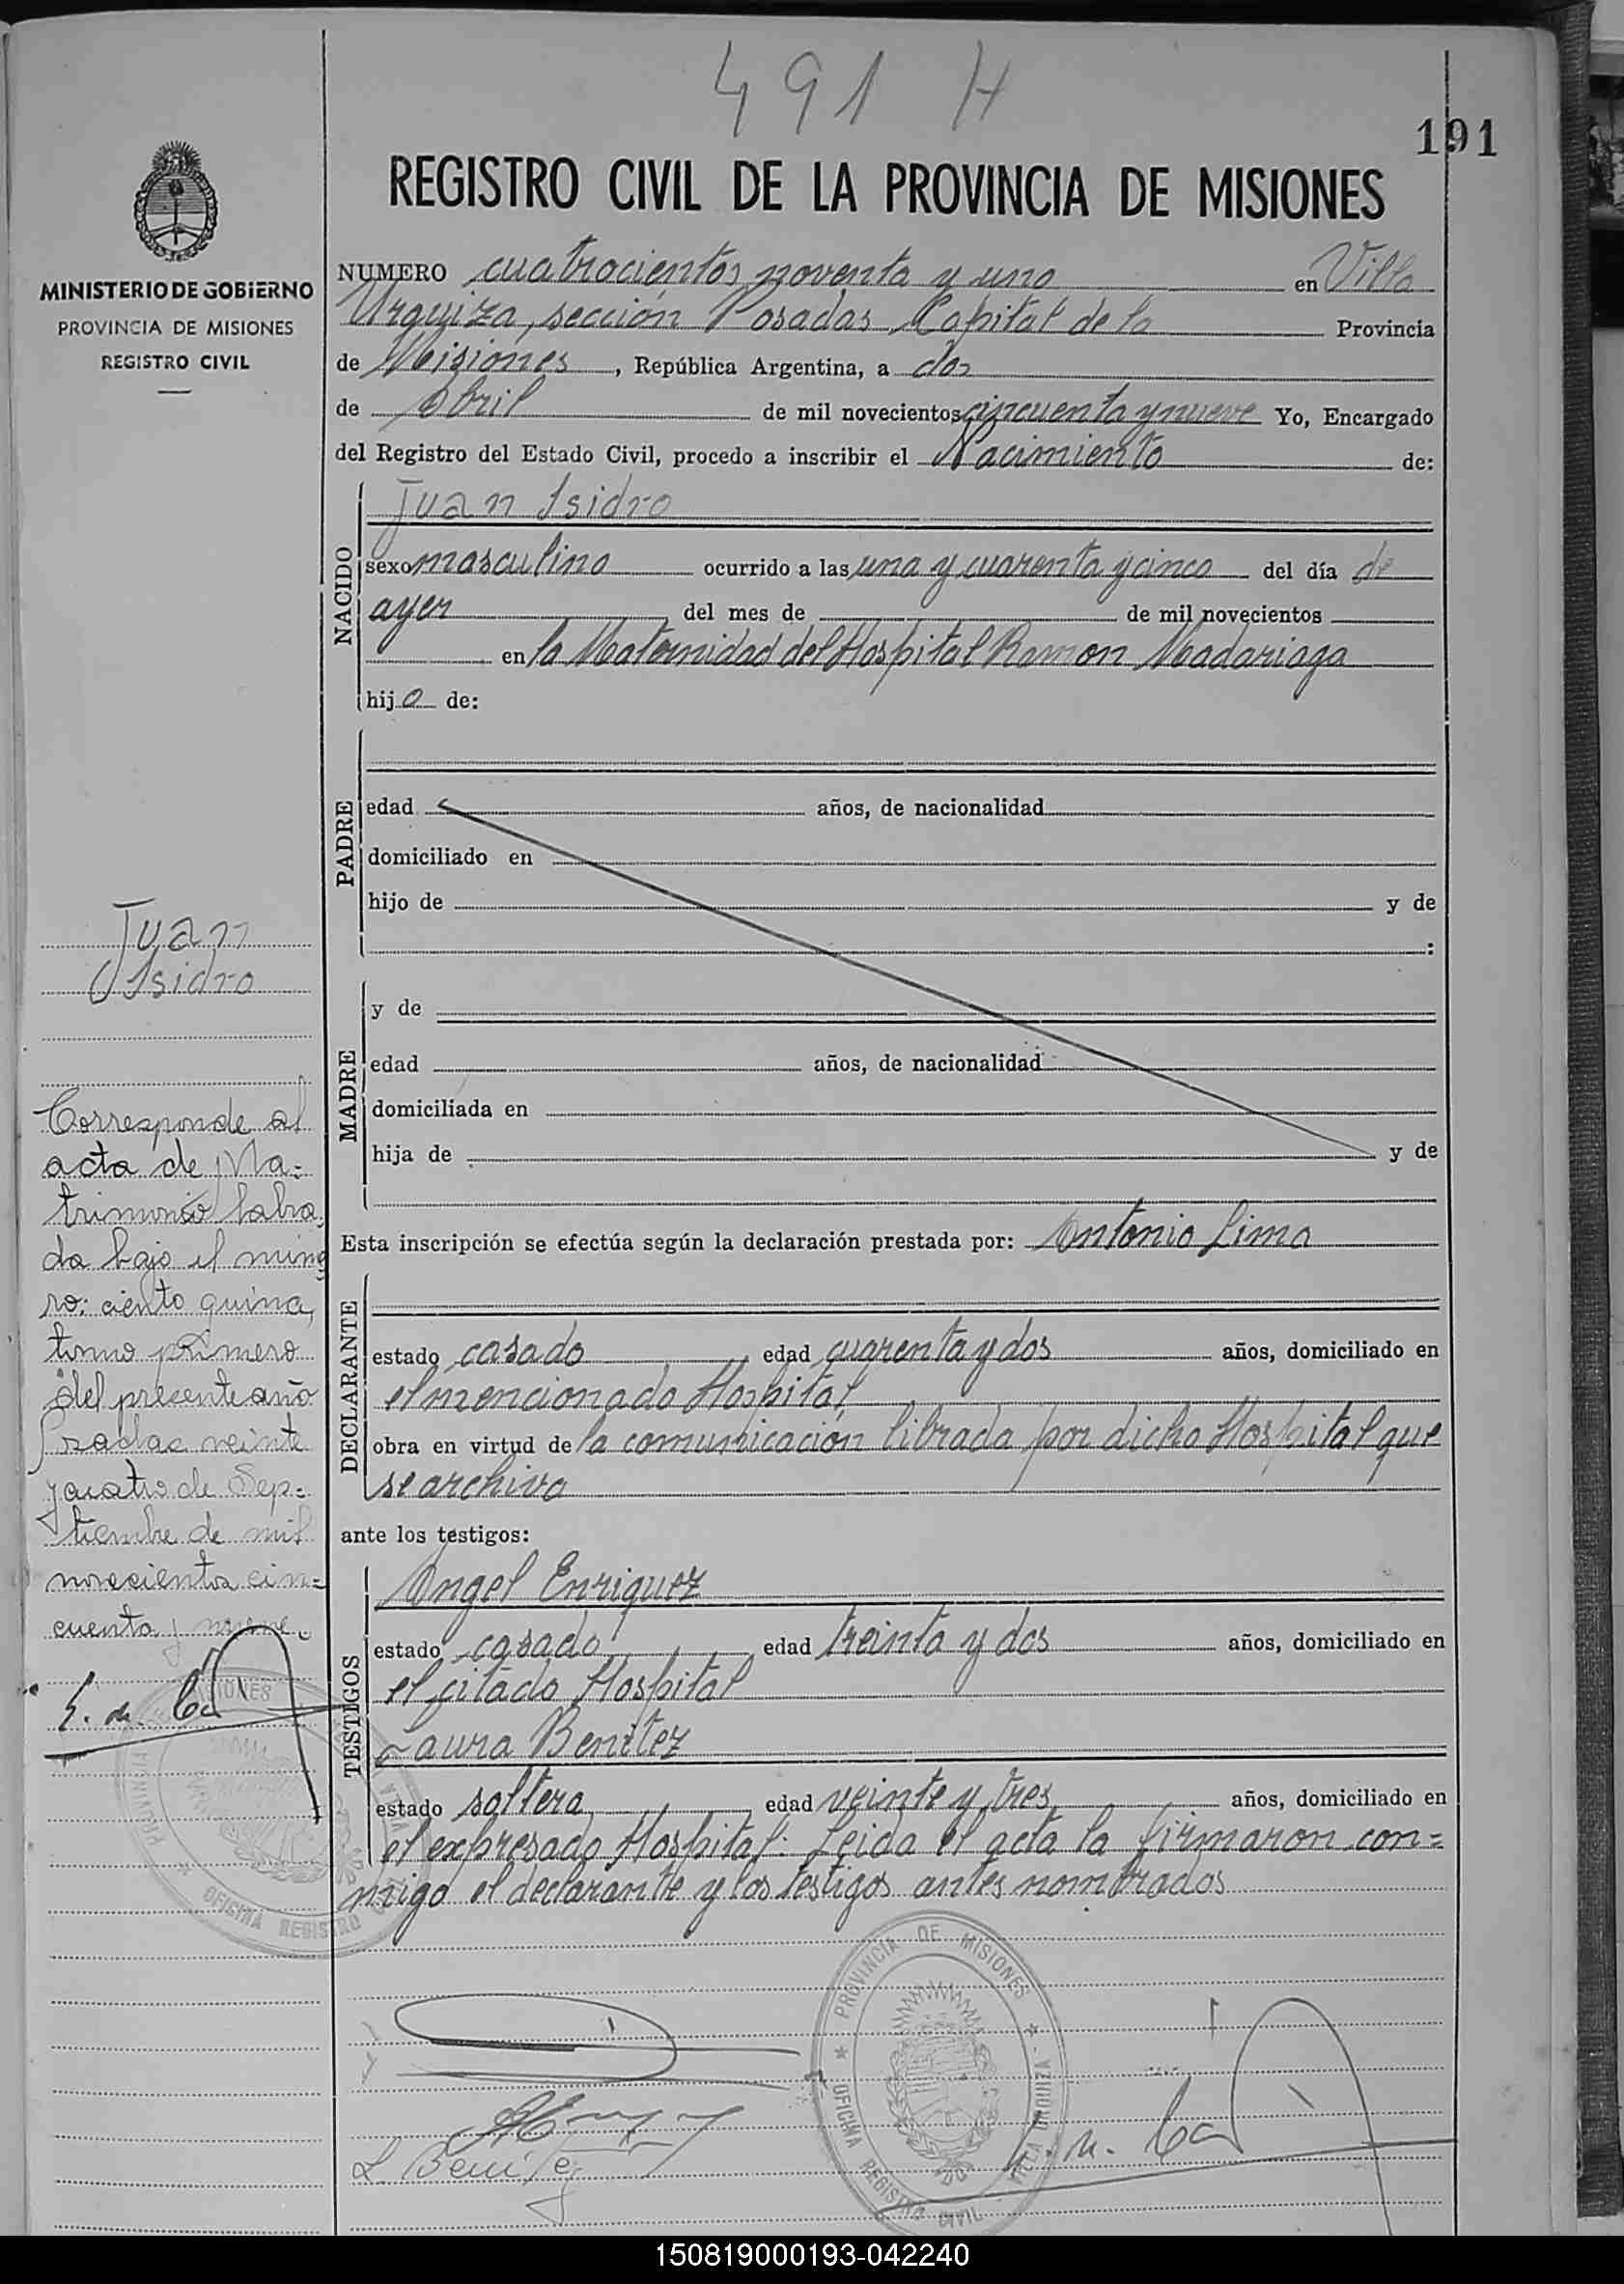 491 H
191
REGISTRO CIVIL DE LA PROVINCIA DE MISIONES
MINISTERIO DE GOBIERNO
PROVINCIA DE MISIONES
REGISTRO CIVIL
NUMERO cuatrocientos noventa y uno en Villa
Urquiza, sección Posadas Capital de la Provincia
de Misiones, República Argentina, a dos
de Abril de mil novecientos cincuenta y nueve Yo, Encargado
del Registro del Estado Civil, procedo a inscribir el Nacimiento de:
NACIDO
Juan Isidro
sexo masculino ocurrido a las una y cuarenta y cinco del día de
ayer del mes de de mil novecientos
en la Maternidad del Hospital Ramon Madariaga
hijo de:
PADRE
edad años, de nacionalidad
domiciliado en
hijo de y de
:
MADRE
y de
edad años, de nacionalidad
domiciliada en
hija de y de
Esta inscripción se efectúa según la declaración prestada por: Antonio Lima
DECLARANTE
estado casado edad cuarenta y dos años, domiciliado en
el mencionado Hospital
obra en virtud de la comunicación librada por dicho Hospital que
se archiva
ante los testigos:
TESTIGOS
Angel Enriquez
estado casado edad treinta y dos años, domiciliado en
el citado Hospital
Laura Benitez
estado soltera edad veinte y tres años, domiciliado en
el expresado Hospital: Leida el acta la firmaron con=
migo el declarante y los testigos antes nombrados
Juan
Isidro
Corresponde al
acta de Ma=
trimonio labra
da bajo el núme
ro: ciento quince,
tomo primero
del presente año
Posadas veinte
y cuatro de Sep=
tiembre de mil
novecientos cin=
cuenta y nueve.
MISIONES
OFICINA REGISTRO
L. Benitez
PROVINCIA DE MISIONES
OFICINA REGISTRO CIVIL
VILLA URQUIZA
150819000193-042240